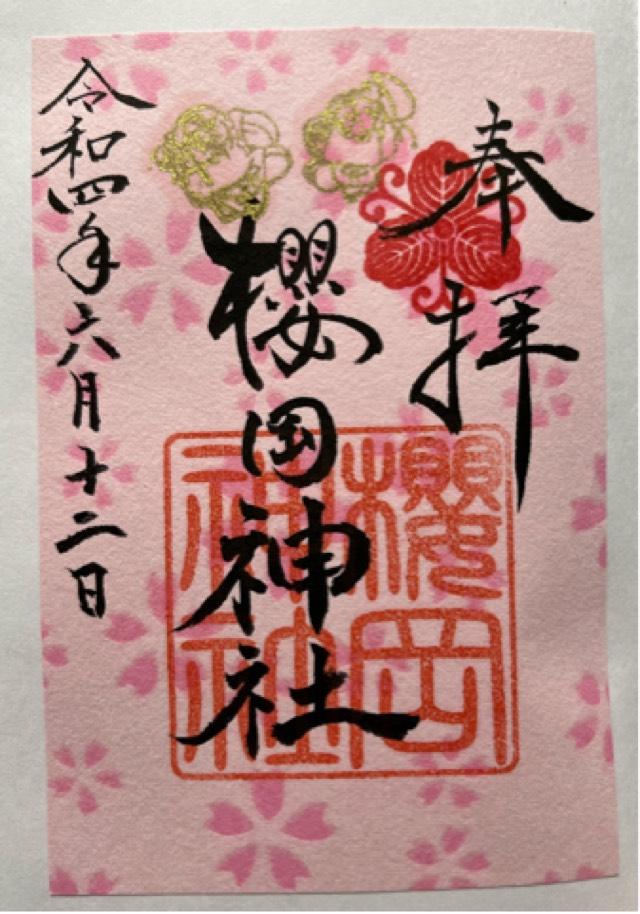 奉拝
櫻岡神社
令和四年六月十二日
櫻岡
神社